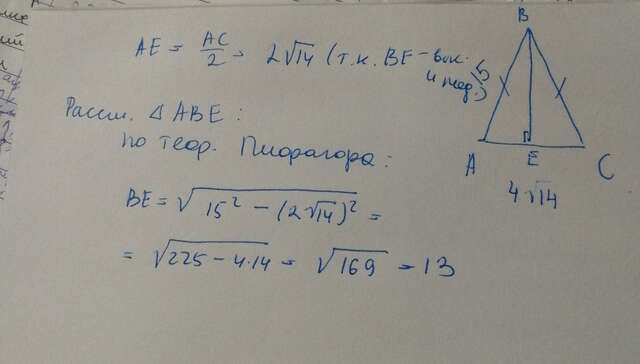 AE = AC/2 = 2√14 (т.к. BE - выс.
и мед.)
Рассм. △ABE:
по теор. Пифагора:
BE = √(15² - (2√14)²) =
= √(225 - 4·14) = √169 = 13
B
15
A E C
4√14